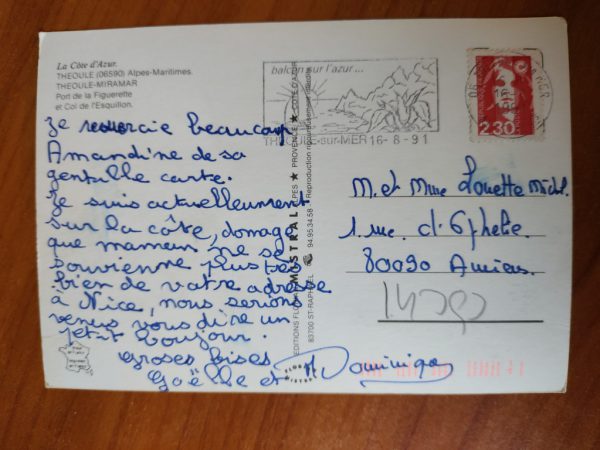 La Côte d'Azur.
THEOULE (06590) Alpes-Maritimes.
THEOULE-MIRAMAR
Port de la Figuerette
et Col de l'Esquillon.
Je remercie beaucoup
Amandine de sa
gentille carte.
Je suis actuellement
sur la côte, domage
que maman ne se
souvienne plus très
bien de votre adresse
à Nice, nous serions
venus vous dire un
petit boujour.
Groses bises
Gaëlle et Dominique
balcon sur l'azur...
THEOULE-sur-MER 16-8-91
2.30
EDITIONS FLORAL MISTRAL ALPES ★ PROVENCE ★ COTE D'AZUR
83700 ST-RAPHAEL 94.95.34.58 Reproduction
M. et Mme Louette Michel
1 rue d'Ophélie
80090 Amiens